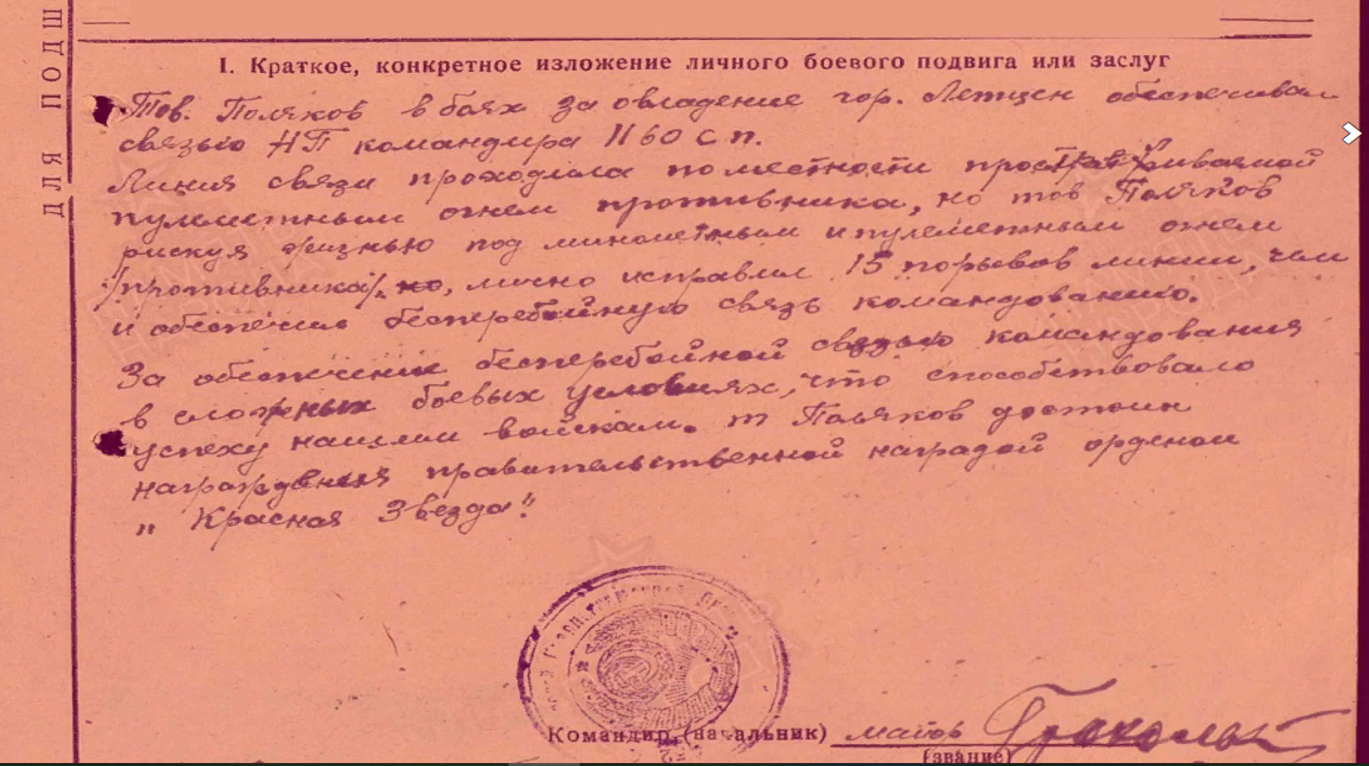 ДЛЯ ПОДШ
I. Краткое, конкретное изложение личного боевого подвига или заслуг
Тов. Поляков в боях за овладение гор. Летцен обеспечивал
связью НП командира 1160 с п.
Линия связи проходила по местности простреливаемой
пулеметным огнем противника, но тов Поляков
рискуя жизнью под минометным и пулеметным огнем
/противника/. но, лично исправил 15 порывов линии, чем
и обеспечил бесперебойную связь командованию.
За обеспечение бесперебойной связью командования
в сложных боевых условиях, что способствовало
успеху нашим войскам. т Поляков достоин
награждения правительственной наградой орденом
„Красная Звезда".
Командир (начальник) майор
(звание)